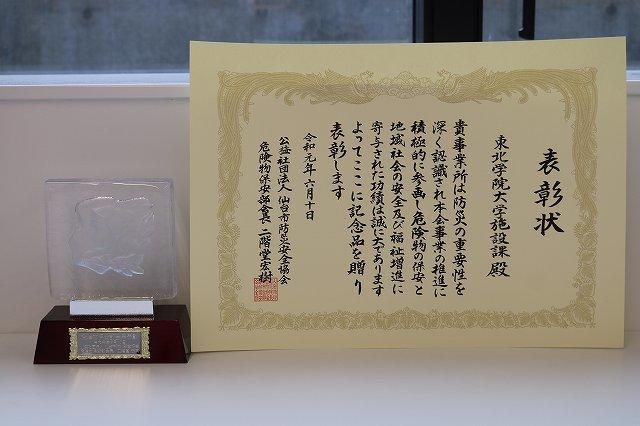 表彰状
東北学院大学施設課 殿
貴事業所は防災の重要性を
深く認識され本会事業の推進に
積極的に参画し危険物の保安と
地域社会の安全及び福祉増進に
寄与された功績は誠に大であります
よってここに記念品を贈り
表彰します
令和元年六月十日
公益社団法人 仙台市防災安全協会
危険物保安部会長 二階堂宏樹